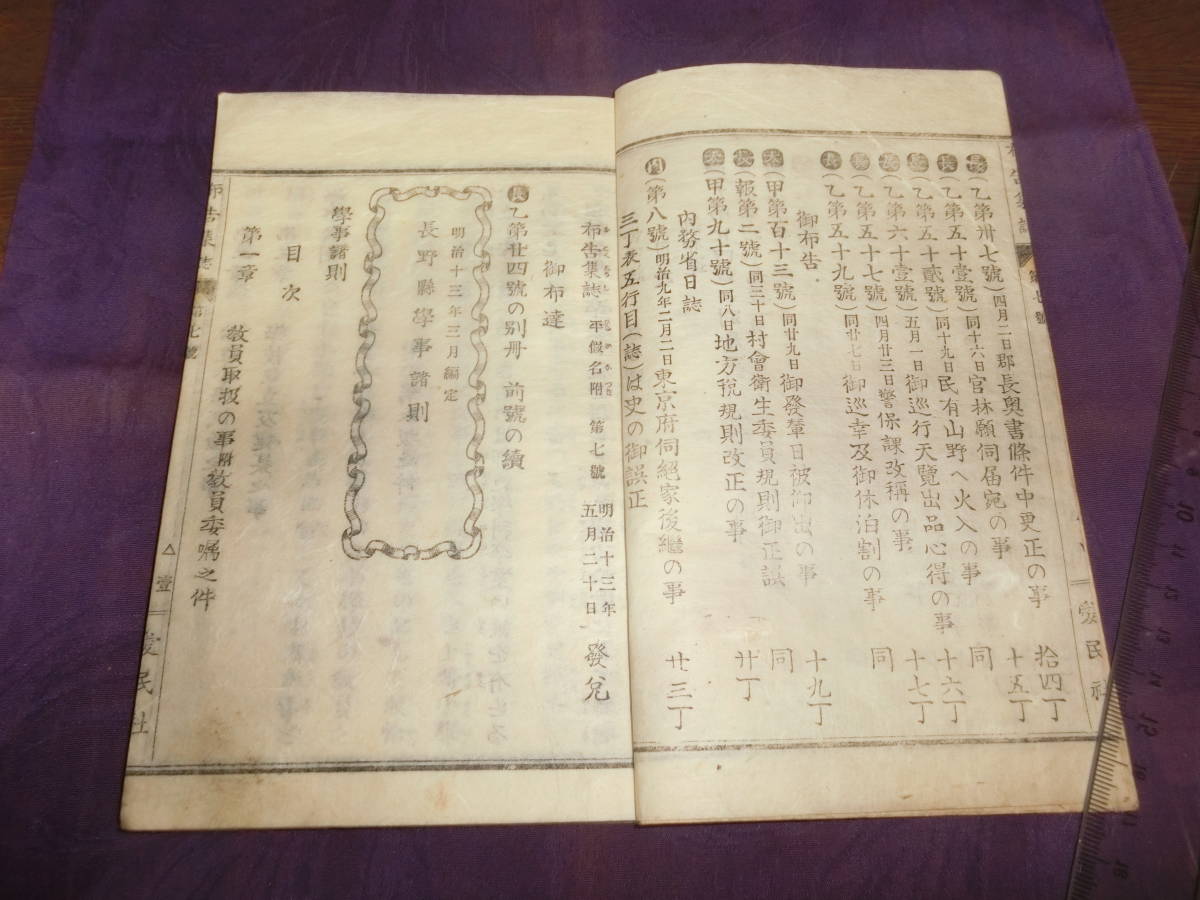 布告集誌 第七號
長 乙第卅七號(四月二日)郡長與書條件中更正の事 拾四丁
長 乙第五十壹號(同十六日)官林願伺届宛の事 十五丁
長 乙第五十貳號(同十九日)民有山野へ火入の事 同
長 乙第六十壹號(五月一日)御巡行天覽出品心得の事 十六丁
長 乙第五十七號(四月廿三日)警保課改稱の事 十七丁
長 乙第五十九號(同廿七日)御巡幸及御休泊割の事 同
御布告
本(甲第百十三號)同廿九日御發輦日被仰出の事 十九丁
長(報第二號)同三十日村會衛生委員規則御正誤 同
本(甲第九十號)同八日地方税規則改正の事 廿丁
内務省日誌
内(第八號)明治九年二月二日東京府伺絕家後繼の事 廿三丁
三丁表五行目(誌)は史の御誤正
愛民社
布告集誌 平假名附 第七號 明治十三年五月二十日 發兌
御布達
長 乙第廿四號の別冊 前號の續
明治十三年三月編定
長野縣學事諸則
學事諸則
目次
第一章
教員取扱の事附教員委嘱之件
布告集誌 第七號 △ 壹 愛民社